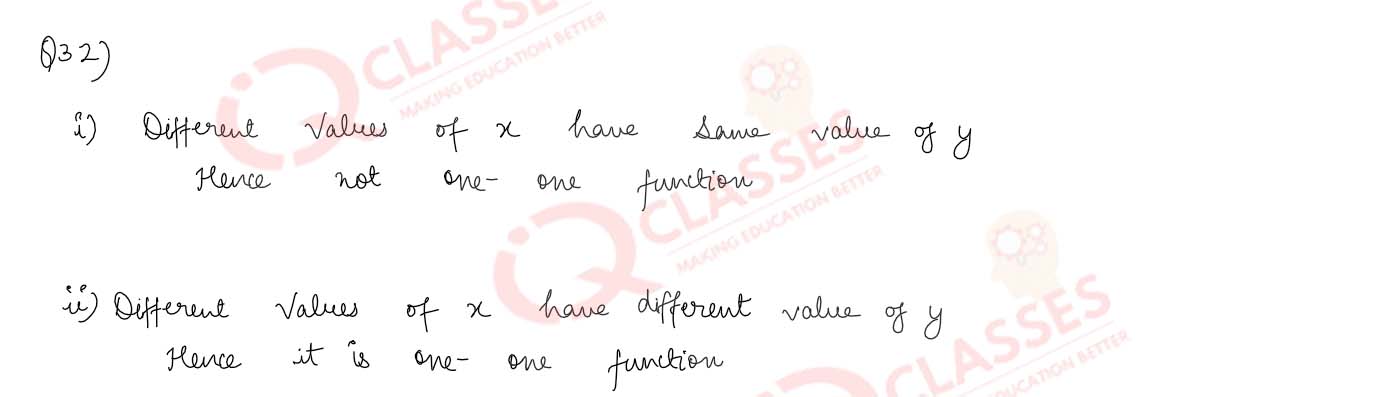 Q32)
i) Different Values of x have same value of y
Hence not one-one function
ii) Different Values of x have different value of y
Hence it is one-one function
CLASSES
MAKING EDUCATION BETTER
CLASSES
MAKING EDUCATION BETTER
CLASSES
EDUCATION BETTER